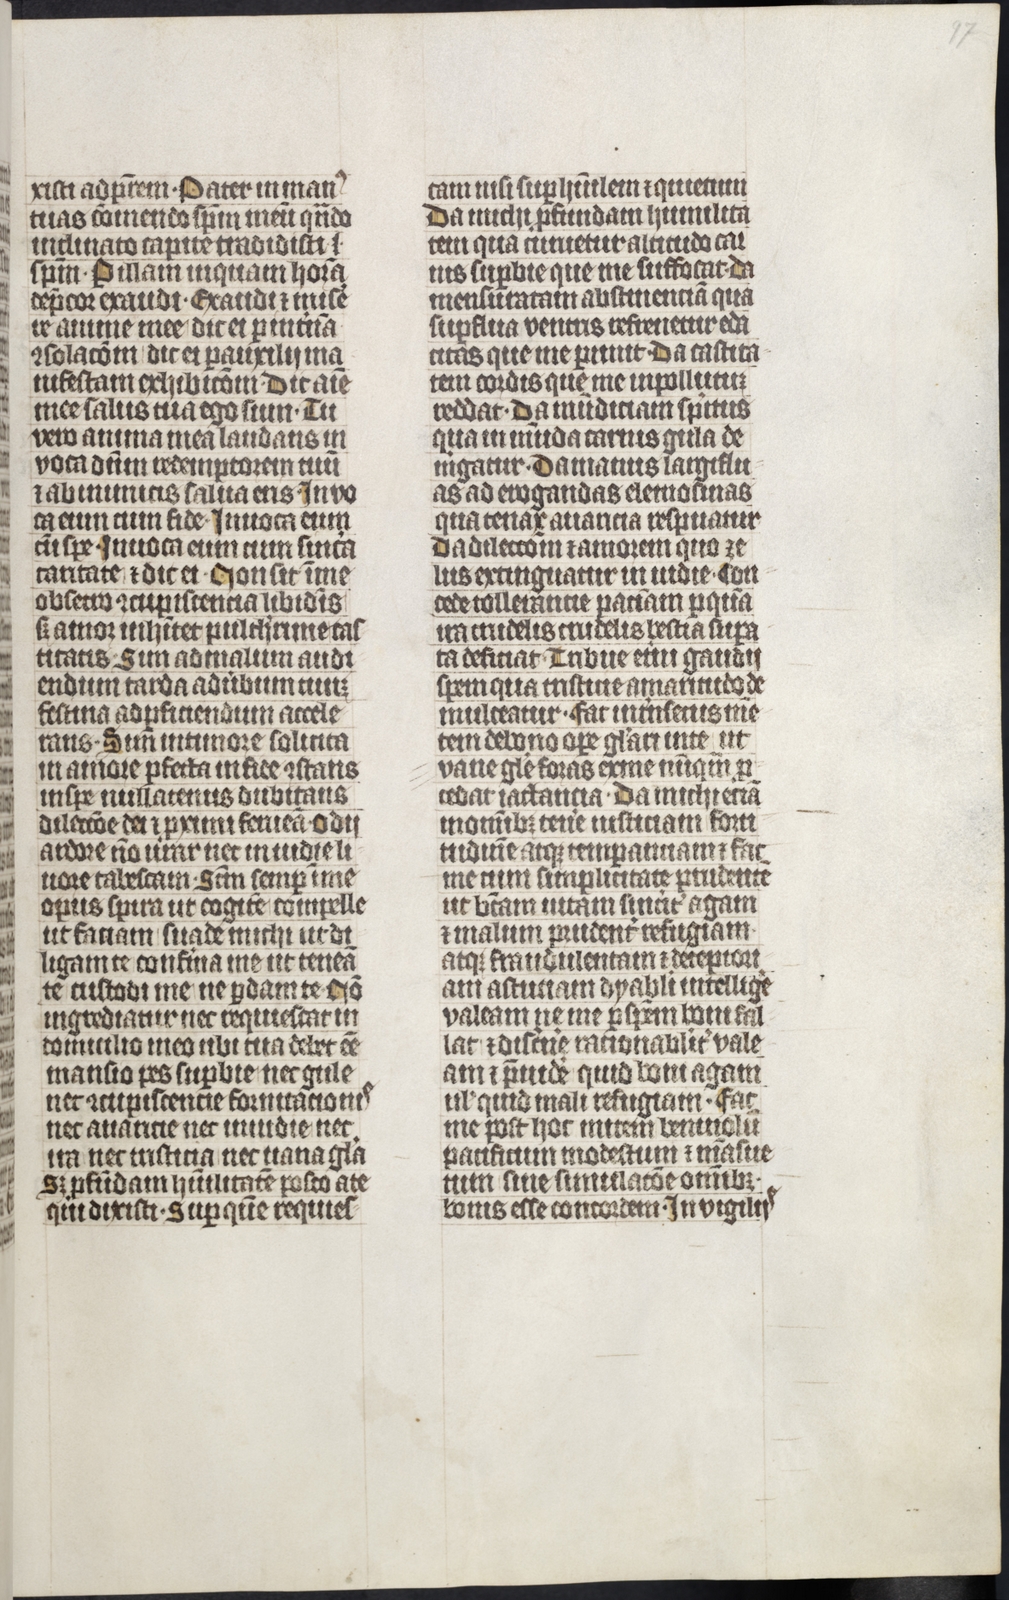 97
xisti ad pr̄em · Pater in man⁹
tuas cōmendo spm̄ meū qn̄do
inclinato capite tradidisti
spm̄ · P illam inquam horā
dep̄cor exaudi · Exaudi ⁊ mise
re anime mee dic ei p̄ intn̄a
ꝯsolacōm dic ei p auxilij ma
nifestam exhibicōm · Dic aīe
mee salus tua ego sum · Tu
vero anima mea laudans in
voca dnm̄ redemptorem tuū
⁊ ab inimicis salua eris · Invo
ca eum cum fide · Inuoca eum
cū spe · Inuoca eum cum sincā
caritate ⁊ dic ei · Non sit ī me
obsecro ꝯcupiscencia libidīs
sꝫ amor inhītet pulchrime cas
titatis · Sim ad malum audi
endum tarda ad ūbum tuum
festina ad pficiendum accele
rans · Sim in timore solicita
in amore pfecta in fide ꝯstans
in spe nullatenus dubitans
dilectōe dei ⁊ pximi ferueā · Odij
ardore nō urar nec inuidie li
uore tabescam · Scm̄ semp ī me
opus spira ut cogitē compelle
ut faciam suade michi ut di
ligam te confirma me ut teneā
te custodi me ne pdam te · Nō
ingrediatur nec requiescat in
domicilio meo ubi tua debet eē
mansio pes supbie nec gule
nec ꝯcupiscencie fornicacionis
nec auaricie nec inuidie nec
ira nec tristicia nec uana glā
Sꝫ pfūdam hūilitatē posco a te
qui dixisti · Sup quē requies
cam nisi sup hūilem ⁊ quietum
Da michi pfundam humilita
tem qua cimetur altitudo car
nis supbie que me suffocat · Da
mensuratam abstinenciā qua
supflua ventris refrenetur eda
citas que me punit · Da castita
tem cordis que me inpollutum
reddat · Da mūdiciam spiritus
qua inmūda carnis gula de
ingatur · Da manus largiflu
as ad erogandas elemosinas
qua tenax auaricia respuatur
Da dilectōm ⁊ amorem quo ze
lus extinguatur inuidie · Con
cede tollerancie paciam p quā
ira crudelis crudelis bestia supa
ta deficiat · Tribue etni gaudij
spem qua tristicie amaritudo de
mulceatur · Fac intrinsecus mē
tem de bono ope gl̄ari in te ut
vane gl̄e foras exire nūqm̄ p
cedat iactancia · Da michi eciā
in omībꝫ tene iusticiam forti
tudinē atqꝫ temperanciam ⁊ fac
me cum simplicitate prudentē
ut btam uitam sincit̄ agam
⁊ malum prudent̄ refugiam
atqꝫ fraudulentam ⁊ deceptori
am astuciam dyabli intelligē
valeam ne me p spem boni fal
lat ⁊ discrīe racionablit̄ vale
am ⁊ p̄uidē quid boni agam
ul̄ quid mali refugiam · Fac
me post hoc mitem beniuolū
pacificum modestum ⁊ māsue
tum sine simulacōe omībꝫ
bonis esse concordem · In vigilijs